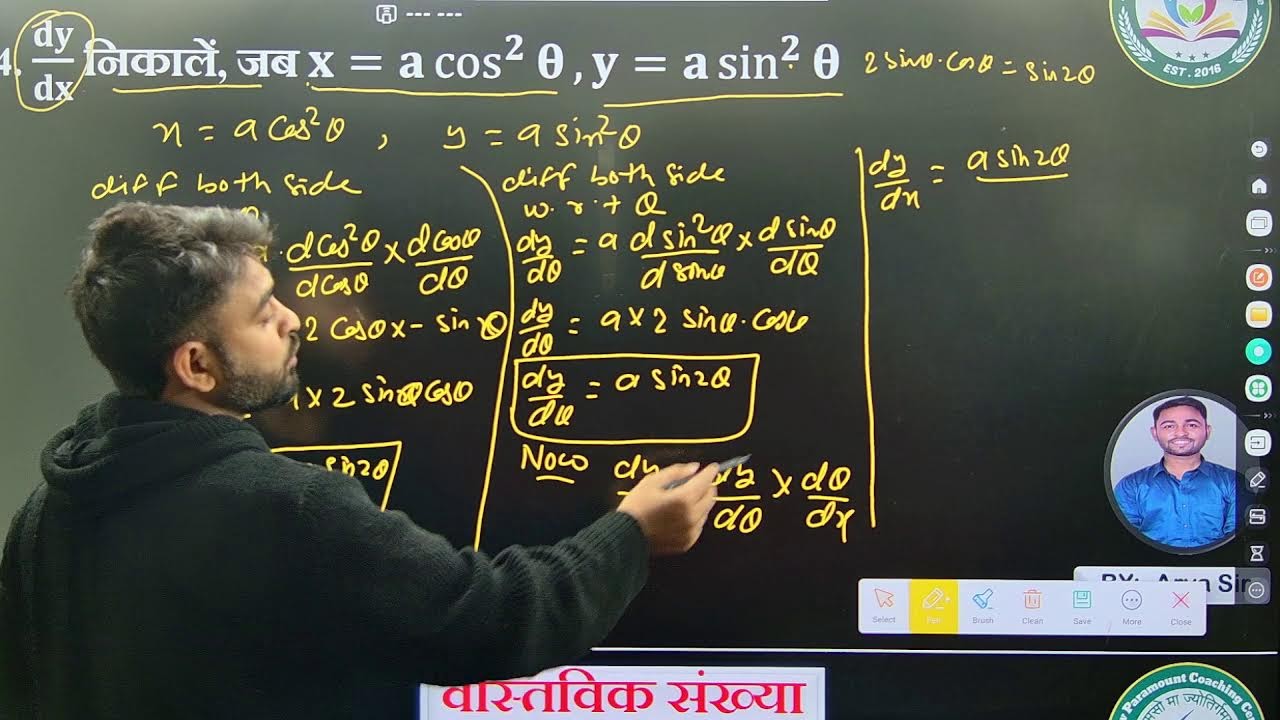 4. dy/dx निकालें, जब x = a cos² θ , y = a sin² θ
2 sinθ · cosθ = sin2θ
x = a cos²θ , y = a sin²θ
diff both side
θ
· dcos²θ/dcosθ × dcosθ/dθ
2 cosθ × - sinθ
× 2 sinθ cosθ
sin2θ
diff both side
w.r.t θ
dy/dθ = a dsin²θ/dsinθ × dsinθ/dθ
dy/dθ = a × 2 sinθ · cosθ
dy/dθ = a sin2θ
Now dy dy/dθ × dθ/dx
dy/dx = a sin2θ
EST. 2016
BY:
Select Pen Brush Clean Save More Close
वास्तविक संख्या
Paramount Coaching
मा ज्योतिर्गमय